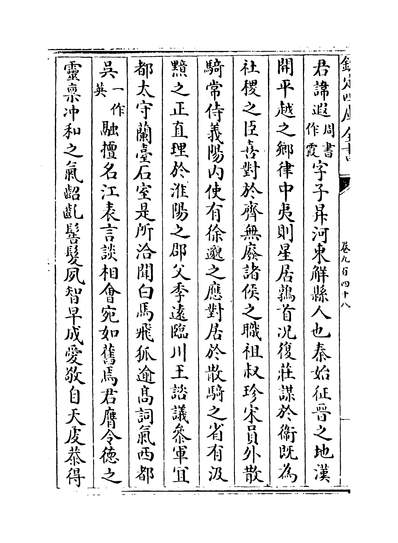 欽定四庫全書
卷九百四十八
君諱遐周書作霞字子昇河東解縣人也秦始征晉之地漢
開平越之鄉律中夷則星居鶉首況復莊謀於衛既為
社稷之臣喜對於齊無廢諸侯之職祖叔珍宋員外散
騎常侍義陽內使有徐邈之應對居於散騎之省有汲
黯之正直理於淮陽之郡父季遠臨川王諮議叅軍宜
都太守蘭臺石室是所洽聞白馬飛狐逾高詞氣西都
吳一作吴融擅名江表言談相會宛如舊焉君膺令德之
靈禀沖和之氣齠齔髫髮夙智早成愛敬自天虔恭得